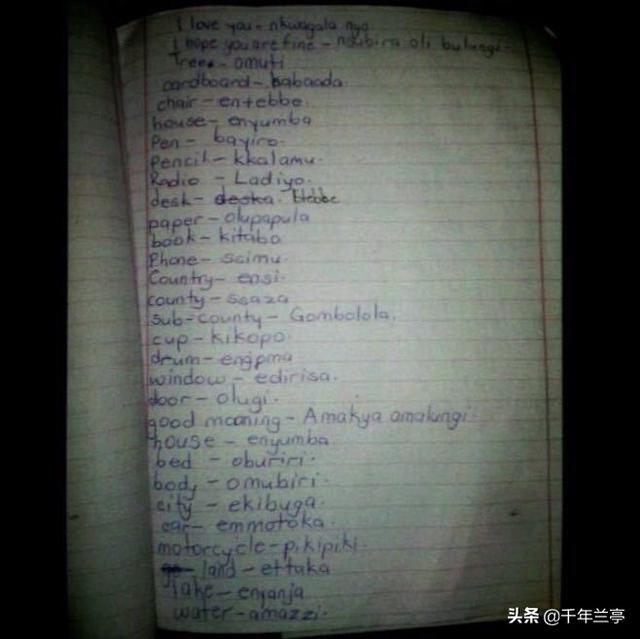 I love you - nkwagala nyo
I hope you are fine - nsubira oli bulungi.
Tree - omuti
cardboard - kabaada
chair - entebbe.
house - enyumba
Pen - bayiro.
pencil - kkalamu.
Radio - Ladiyo.
desk - deska. Etebbe
paper - olupapula
book - kitabo
Phone - ssimu.
Country - ensi.
county - ssaza
sub-county - Gombolola.
cup - kikopo.
drum - engoma
window - edirisa.
door - olugi.
good morning - Amakya amalungi.
house - enyumba
bed - oburiri.
body - omubiri
city - ekibuga.
car - emmotoka.
motorcycle - pikipiki.
land - ettaka
lake - enyanja
water - amazzi.
头条 @千年兰亭